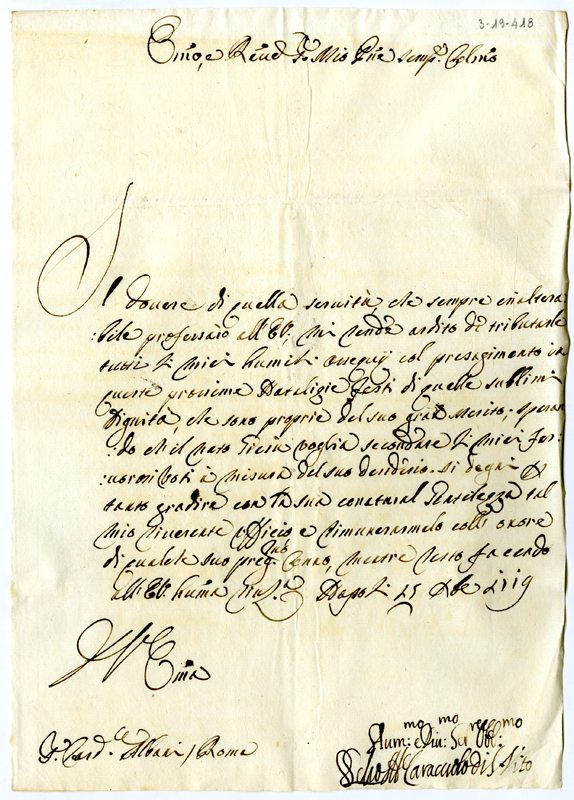 3-19-418
Emo, e Reud Sr Mio Pne semp. Colmo
Il douere di quella seruitù che sempre inaltera:
:bile professaio all'EV, mi rende ardito di tributarle
tutti li miei humili ossequij col presagimento in
queste prossime Natalizie festi di quelle sublimi
Dignità, che sono proprie del suo gran Merito; speran
:do ch'il nato Giesù voglia secondare li miei fer:
:uorosi voti à misura del suo desiderio. Si degni
tanto gradire con la sua conatural Gentilezza tal
mio riuerente officio e rimunerarmelo coll'onore
di qualche suo preg.mo cenno, mentre resto facendo
all'EV. huma riu.za Napoli 25 Xbe 1719
D V Ema
Sr Card.le Albani / Roma
Hum:mo e Diu:mo Ser:re Obl:mo
Caracciolo di S. Vito